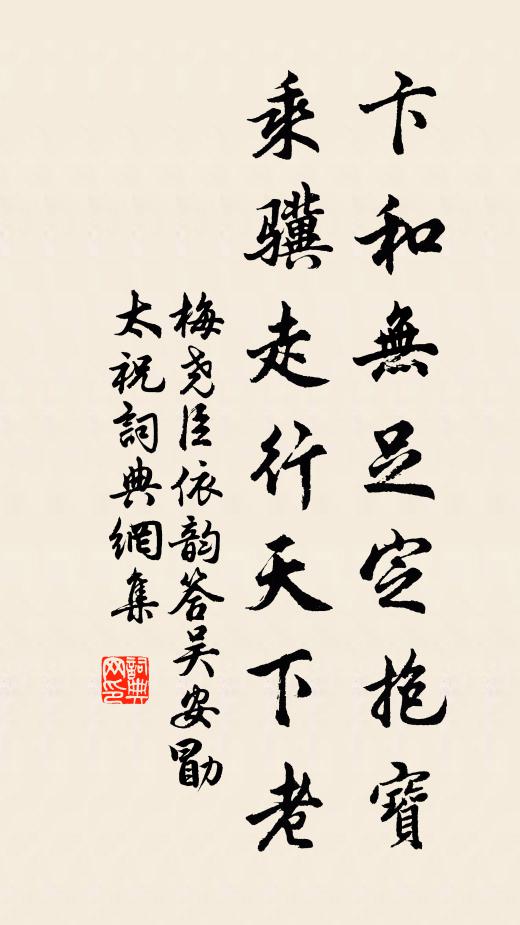 卞和無足定抱寶
乘骥走行天下老
梅尧臣依韵答吴安勖
太祝詞典網集
詞典网印